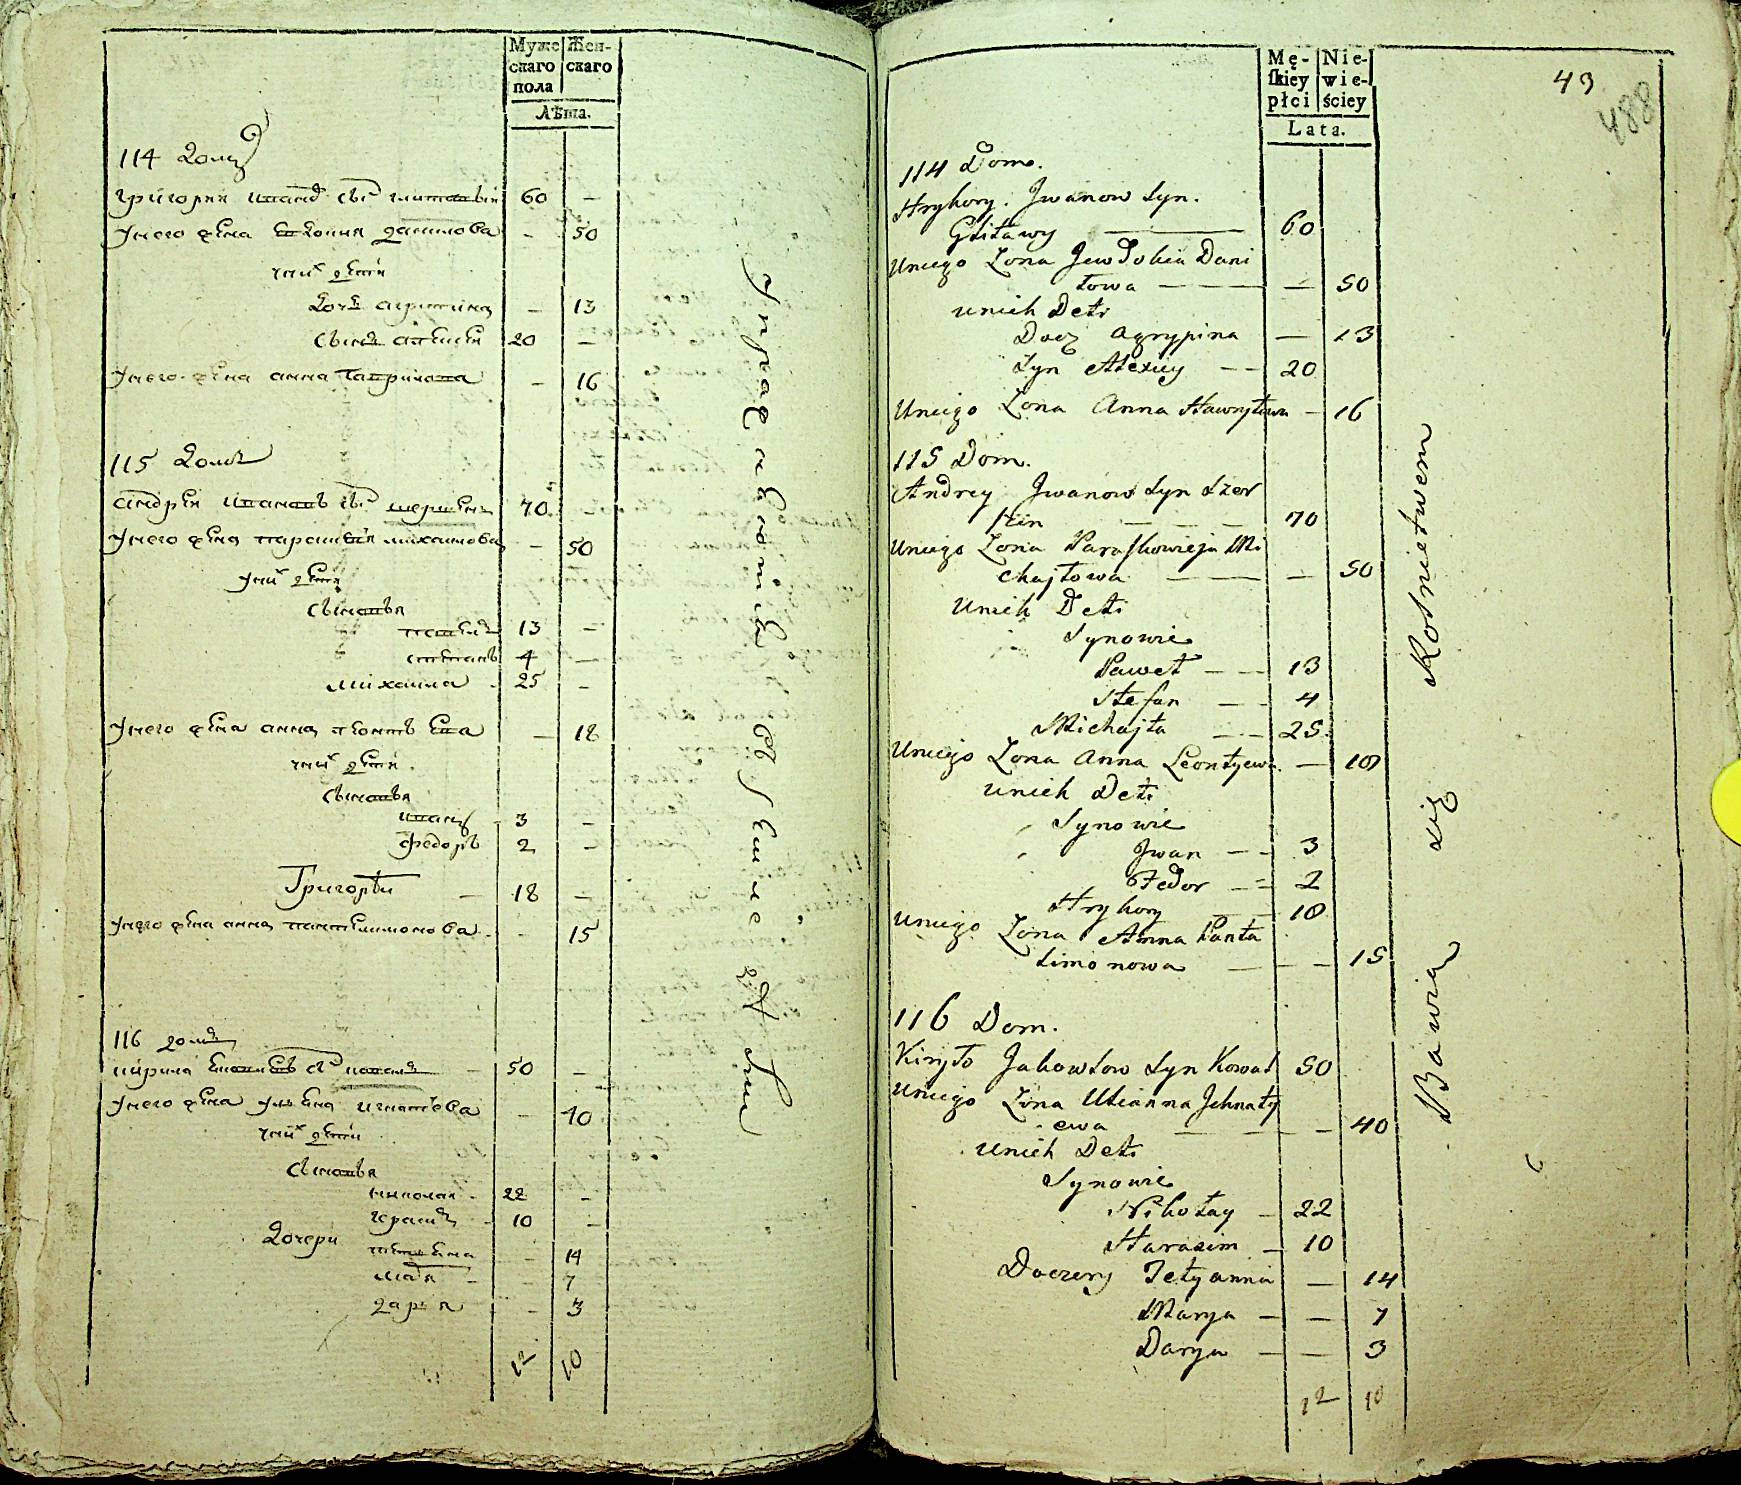 Муже
скаго
пола
Жен-
скаго
Лѣта.
114 домъ
григорий иванов сн глитавый 60 —
у него жена евдокия данилова — 50
у них дети
дочь агрипина — 13
сынъ алексей 20 —
у него жена анна гаврилова — 16
115 домъ
андрей ивановъ сн шершень 70 —
у него жена парасковия михаилова — 50
у них дети
сыновья
павелъ 13 —
степанъ 4 —
михаила 25 —
у него жена анна леонтьева — 18
у них дети
сыновья
иванъ 3 —
федоръ 2 —
Григорѣй — 18 —
у него жена анна пантелимонова — 15
116 домъ
кирила сн коваль — 50 —
у него жена ульяна игнатьева — 40
у них дети
сыновья
николай 22 —
герасим 10 —
дочери татьяна — 14
марья — 7
дарья — 3
12 10
упражняются в хлебопашестве
Mę-
skiey
płci
Nie-
wie-
ściey
Lata.
43
488
114 Dom.
Hryhory. Jwanow Syn.
Glitawy — 60
Uniego Zona Jewdokia Dani
łowa — — 50
unich Deti
Docz Agrypina — 13
Syn Alexiey — 20
Uniego Zona Anna Hawryłowa — 16
115 Dom.
Andrey Jwanow Syn Szer
szin — 70
Uniego Zona Paraskowieja Mi
chajłowa — — 50
Unich Deti
Synowie
Paweł — 13
Stefan — 4
Michajła — 25
Uniego Zona Anna Leontyewa. — 18
Unich Deti
Synowie
Jwan — 3
Fedor — 2
Hryhory — 18
Uniego Zona Anna Panta
limonowa — — 15
116 Dom.
Kiryło Jakowlow Syn Kowal 50
Uniego Zona Ulianna Jehnaty
ewa — — 40
Unich Deti
Synowie
Nikołay — 22
Harasim — 10
Doczery Tetyanna — 14
Marya — — 7
Darya — — 3
12 10
Bawią się Rolnictwem